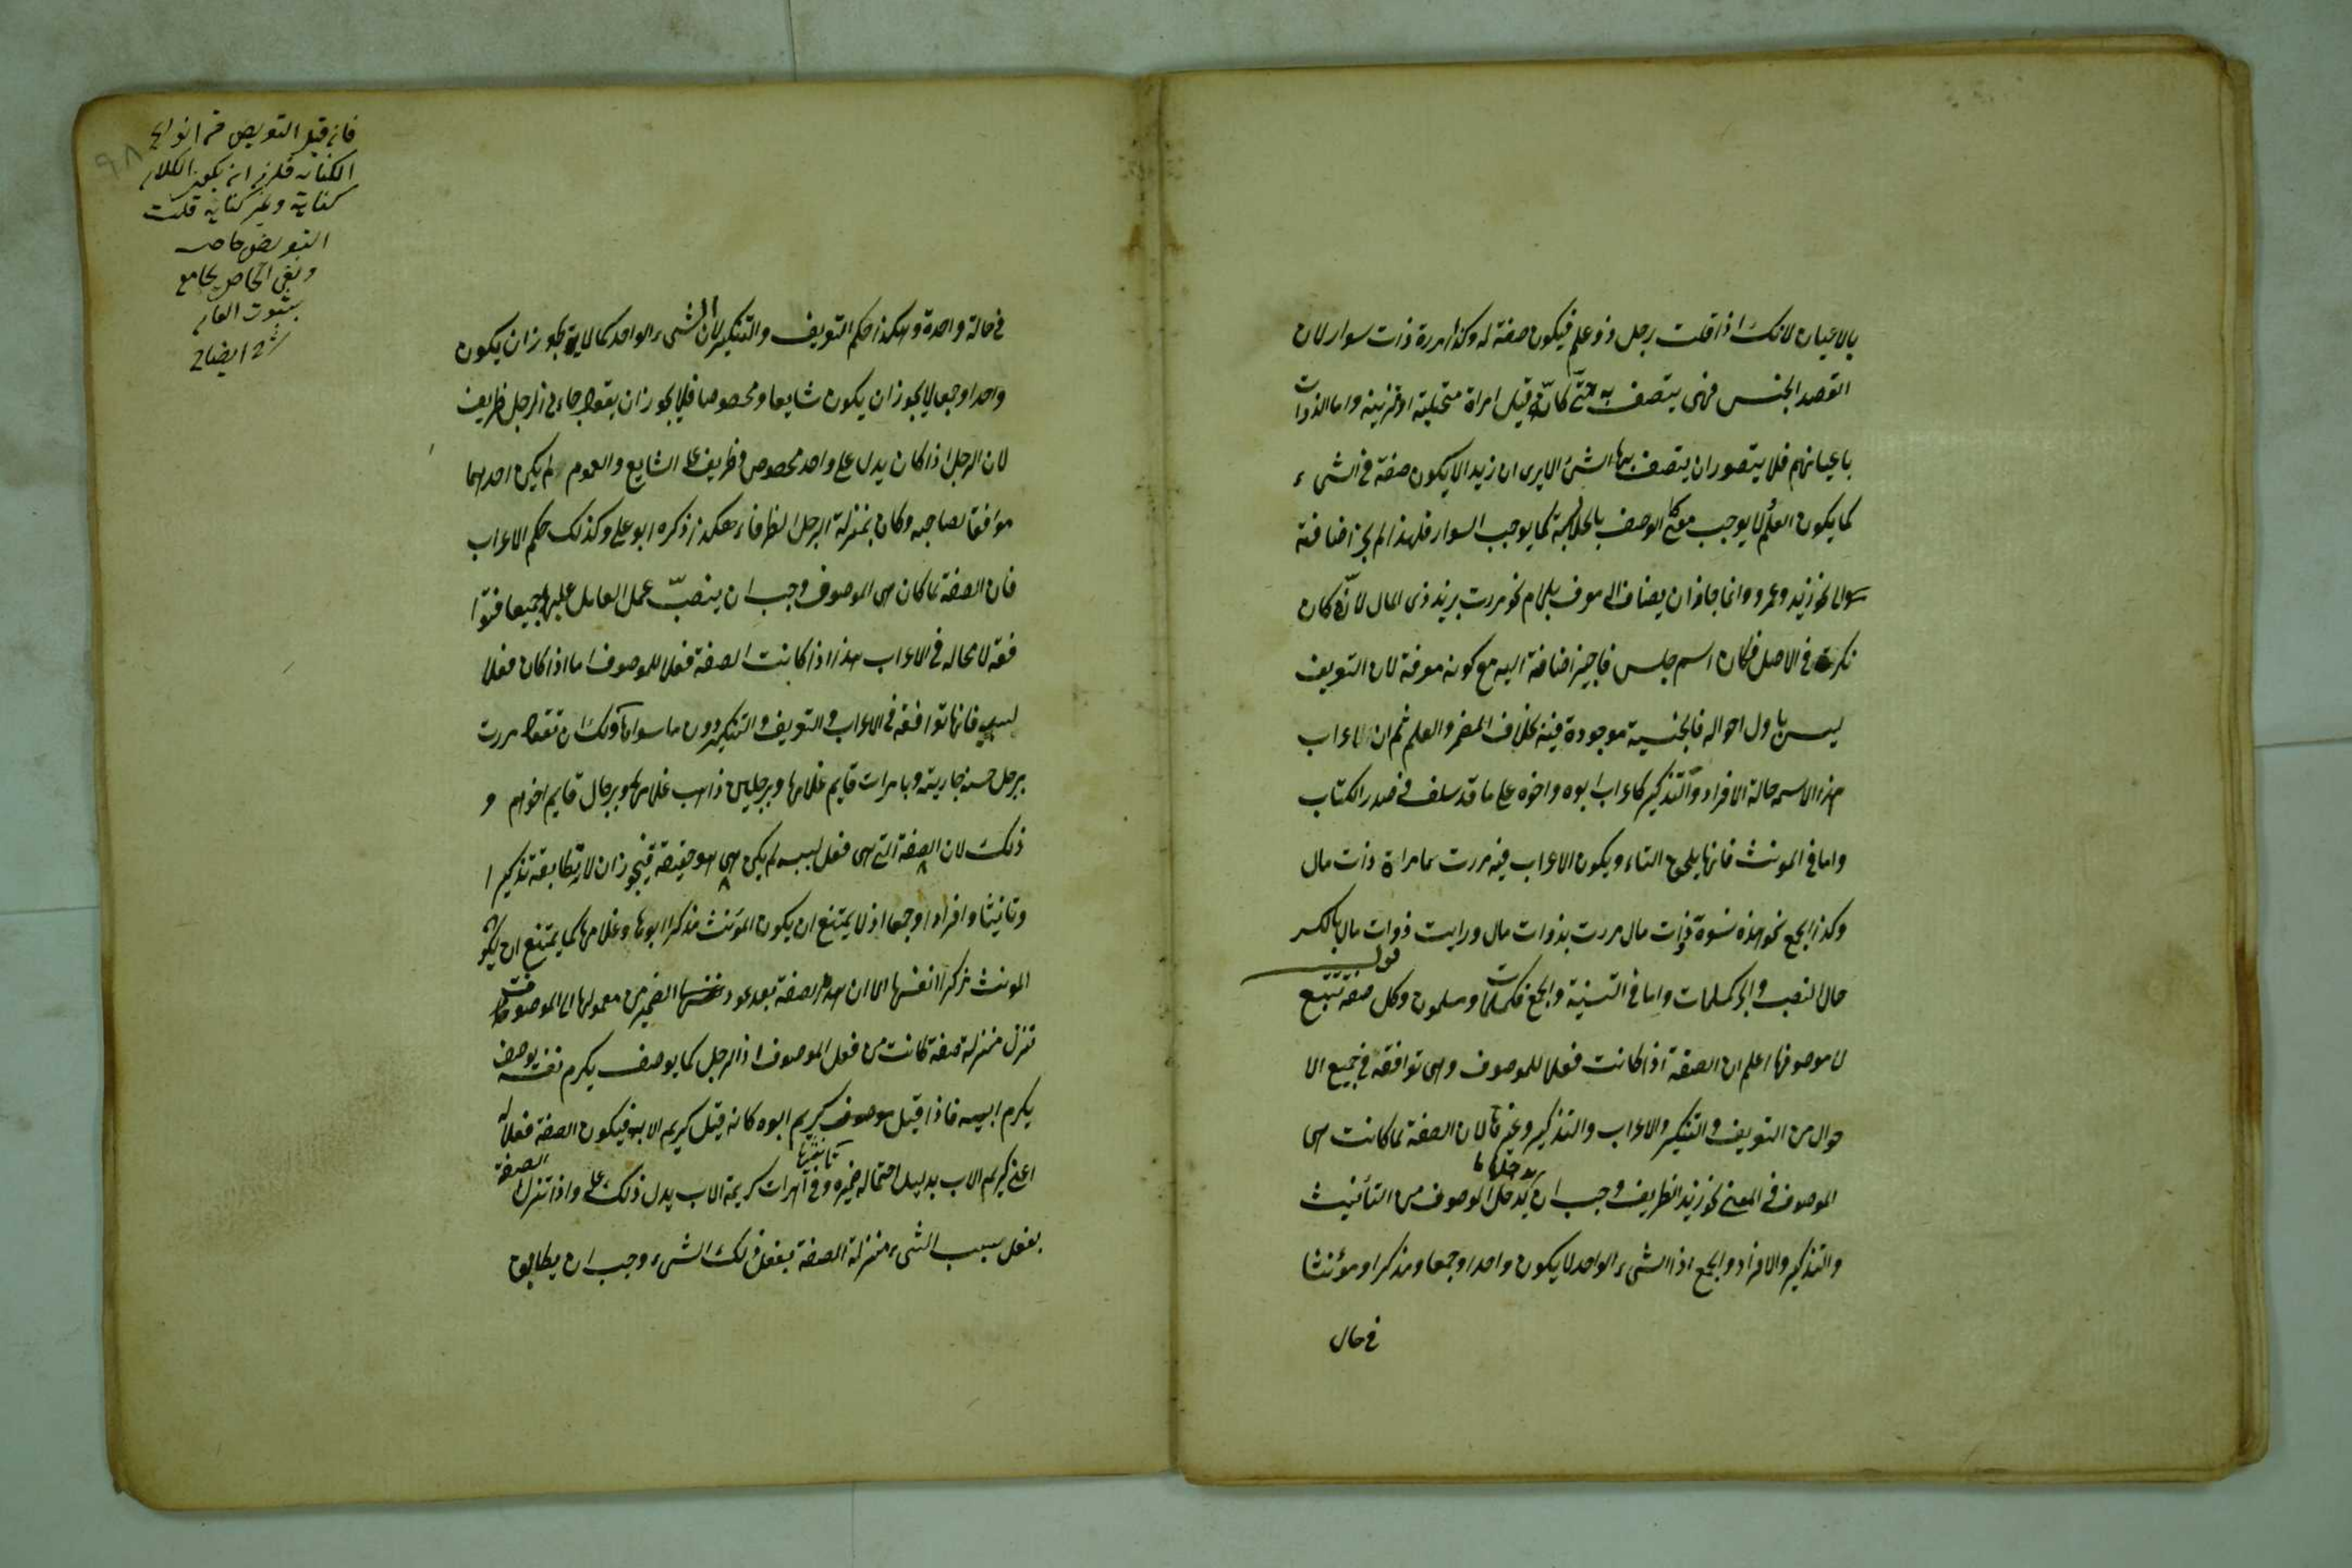 بالاعيان لانك اذا قلت رجل ذو علم فيكون صفة له وكذا امرة ذات سوار لان
القصد الجنس فهى يتصف به حتى كانّه قيل امراة متحلية او متزينة واما الذوات
باعيانهم فلا يتصور ان يتصف بها الشئ الا يرى ان زيدا لا يكون صفة فى الشىء
كما يكون العلم لا يوجب معنى الوصف كما يوجب السوار فلهذا لم يجز اضافته
الى نحو زيد وعمرو وانما جاز ان يضاف الى معرف بلام نحو مررت بزيد ذى المال لانّه كان
نكرة فى الاصل فكان اسم جنس فاجيز اضافته اليه مع كونه معرفة لان التعريف
ليس باول احواله فالجنسية موجودة فيه بخلاف المضمر والعلم ثم ان الاعراب
هذا الاسم حالة الافراد والتذكير كاعراب ابوه واخوه على ما قد سلف فى صدر الكتاب
واما فى المونث فانها يلحق التاء ويكون الاعراب فيه مررت بامراة ذات مال
وكذا الجمع نحو هذه نسوة ذوات مال مررت بذوات مال ورايت ذوات مال بالكسر
حال النصب والجر كمسلمات واما فى التثنية والجمع فكمسلمان ومسلمون قوله وكل صفة تتبع
موصوفها اعلم ان الصفة اذا كانت فعلا للموصوف وهى توافقه فى جميع الا
حوال من التعريف والتنكير والاعراب والتذكير وغيرها لان الصفة لما كانت هى
الموصوف فى المعنى نحو زيد الظريف وجب ان يدخلها ما يدخل الموصوف من التأنيث
والتذكير والافراد والجمع اذ الشىء الواحد لا يكون واحدا وجمعا ومذكرا ومؤنثا
فى حال
فى حالة واحدة وهكذا حكم التعريف والتنكير لان الشىء الواحد كما لا يجوز ان يكون
واحدا وجمعا لا يجوز ان يكون شايعا ومخصوصا فلا يجوز ان يقول جاءنى الرجل ظريف
لان الرجل اذا كان يدل على واحد مخصوص وظريف على الشايع والعموم لم يكن احدهما
موافقا لصاحبه وكان بمنزلة الرجل الظرفاء هكذا ذكره ابو على وكذلك حكم الاعراب
فان الصفة لما كان هى الموصوف وجب ان ينصبّ عمل العامل عليهما جميعا فتوا
فقه لا محاله فى الاعراب هذا اذا كانت الصفة فعلا للموصوف اما اذا كان فعلا
لسببه فانها توافقه فى الاعراب والتعريف والتنكير دون ما سواها ولك ان تقول مررت
برجل حسنة جاريته وبامرات قايم غلامها وبرجلين ذاهب غلامهما وبرجال قايم اخوهم و
ذلك لان الصفة التى هى فعل لسببه لم يكن هى هو حقيقة فيجوز ان لا يطابقه تذكيرا
وتانيثا وافرادا وجمعا اذ لا يمتنع ان يكون المؤنث مذكرا ابوها وغلامها كما يمتنع ان يكون
المونث مذكرا نفسها الا ان هذه الصفة بعد عود الضمير من معمولها الى الموصوف قد
تنزل منزلة صفة كانت من فعل الموصوف اذ الرجل كما يوصف بكرم نفسه يوصف
بكرم ابيه فاذا قيل كريم ابوه كانه قيل كريم الاب فيكون الصفة فعلا له
اعنى كريم الاب بدليل احتماله ضميره وفى تانيثها امرات كريمة الاب يدل ذلك على واذا تنزل الصفة
بفعل سبب الشىء منزلة الصفة بفعل ذلك الشىء وجب ان يطابق
٩٨
فان قيل التعريض من انواع
الكناية فلزم ان يكون الكلام
كناية وغير كناية قلت
التعريض خاص
ونفى الخاص يجامع
بثبوت العام